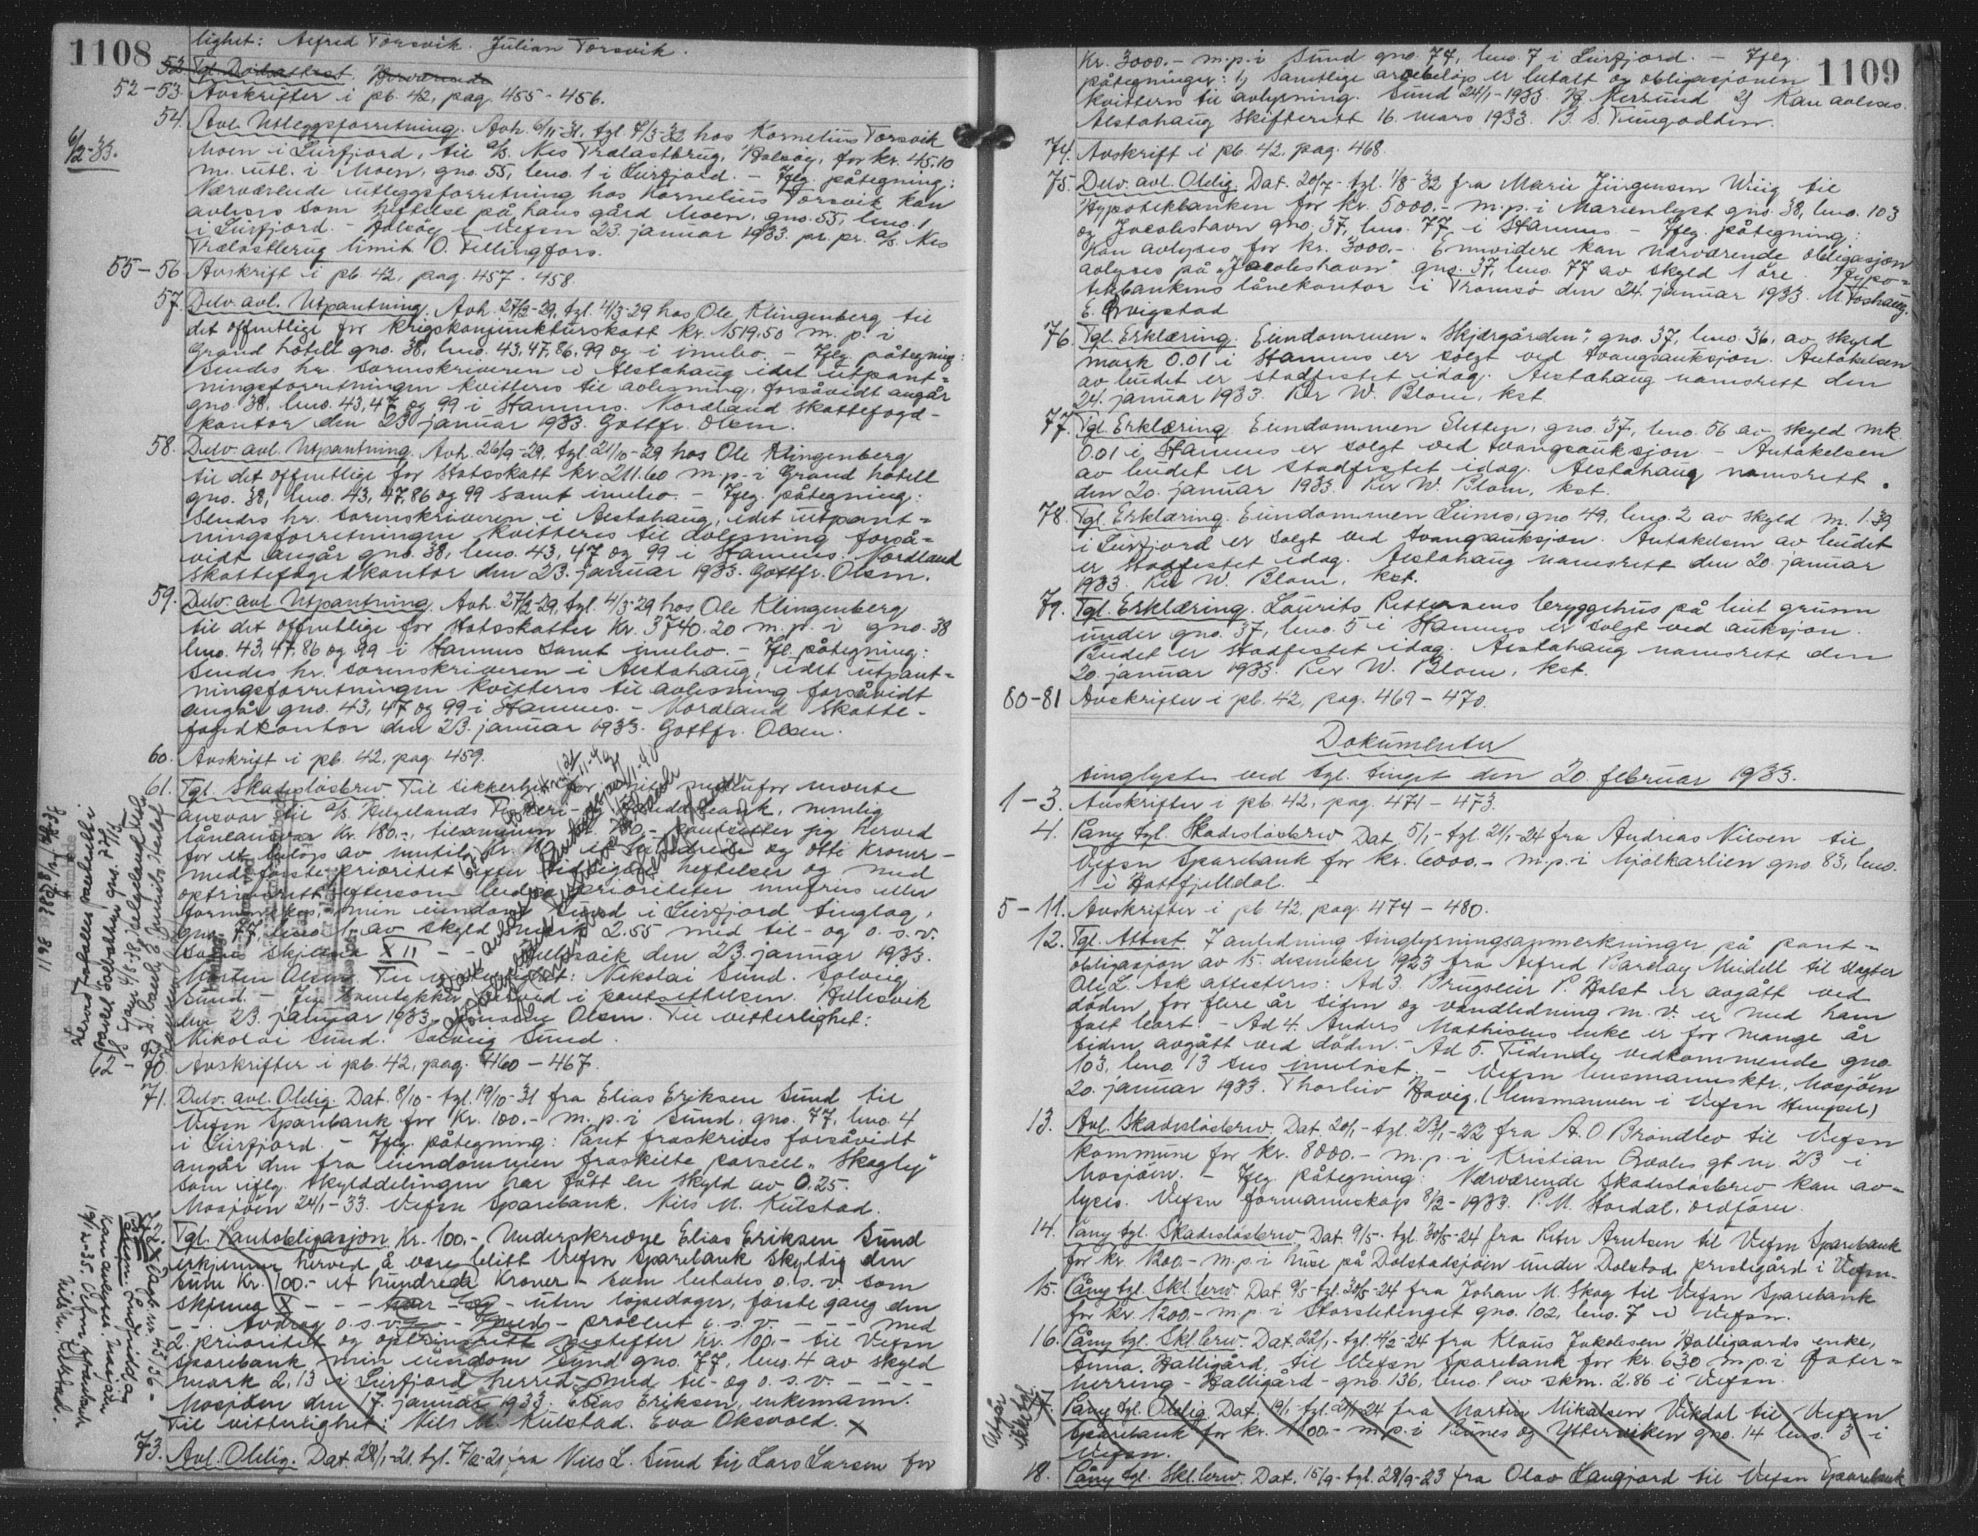 1108
lighet: Alfred Torsvik. Julian Torsvik.
52-53. Avskrifter i pb. 42, pag. 455-456.
54. Avl. Utleggsforretning. Avh. 6/11-31, tgl. 7/3-32 hos Kornelius Torsvik
6/2-33.
Moen i Leirfjord, til A/S. Nes Trælastbrug, Halsøy, for kr. 45.10
m. utl. i Moen, gno. 55, bno. 1 i Leirfjord. - Iflg. påtegning:
Nærværende utleggsforretning hos Kornelius Torsvik kan
avlyses som heftelse på hans gård Moen, gno. 55, bno. 1
i Leirfjord. - Halsøy i Vefsn 23. januar 1933. pr. pr. A/S. Nes
Trælastbrug limit O. Fellingfors.
55-56. Avskrift i pb. 42, pag. 457-458.
57. Delv. avl. Utpantning. Avh. 27/2-29, tgl. 4/3-29 hos Ole Klingenberg til
det offentlige for krigskonjunkturskatt kr. 1519.50 m. p. i
Grand hotell gno. 38, bno. 43, 47, 86, 99 og i innbo. - Iflg. påtegning:
Sendes hr. sorenskriveren i Alstahaug idet utpant-
ningsforretningen kvitteres til avlesning, forsåvidt angår
gno. 38, bno. 43, 47 og 99 i Stamnes. Nordland skattefogd-
kontor den 23. januar 1933. Gottfr. Olsen.
58. Delv. avl. Utpantning. Avh. 26/9-29, tgl. 21/10-29 hos Ole Klingenberg
til det offentlige for Statsskatt kr. 211.60 m.p. i Grand hotell
gno. 38, bno. 43, 47, 86 og 99 samt innbo. - Iflg. påtegning:
Sendes hr. sorenskriveren i Alstahaug, idet utpant-
ningsforretningen kvitteres til avlesning forså-
vidt angår gno. 38, bno. 43, 47 og 99 i Stamnes. Nordland
skattefogedkontor den 23. januar 1933. Gottfr. Olsen.
59. Delv. avl. Utpantning. Avh. 27/2-29, tgl. 4/3-29 hos Ole Klingenberg
til det offentlige for Statsskatter kr. 3740.20 m.p. i gno. 38
bno. 43, 47, 86 og 99 i Stamnes samt innbo. - Ifl. påtegning:
Sendes hr. sorenskriveren i Alstahaug, idet utpant-
ningsforretningen kvitteres til avlesning forsåvidt
angår gno. 43, 47 og 99 i Stamnes. - Nordland Skatte-
fogdkontor den 23. januar 1933. Gottfr. Olsen.
60. Avskrift i pb. 42, pag. 459.
61. Tgl. Skadesløsbrev. Til sikkerhet for mitt nedenfor nevnte
ansvar til A/S. Helgelands nemlig
låneansvar kr. 180.-, tilsammen kr. 180.- pantsetter jeg herved
for et beløp av inntil kr. og otti kroner -
med første prioritet etter heftelser og med
optrinsrett eftersom bedre prioriteter innfries eller
forminskes, min eiendom Sund i Leirfjord tinglag,
gno. 77, bno. 1, av skyld mark 2.55 med til- og o. s. v.
XII - - Hellesvik den 23. januar 1933.
Morten Olsen. Til vitterlighet: Nikolai Sund. Solveig
Sund. - Jeg samtykker herved i pantsettelsen. Hellesvik
den 23. januar 1933. Olsen. Til vitterlighet:
Nikolai Sund. Solveig Sund.
62-70. Avskrifter i pb. 42, pag. 460-467.
71. Delv. avl. Oblig. Dat. 8/10- tgl. 19/10-31 fra Elias Eriksen Sund til
Vefsn Sparebank for kr. 100.- m. p. i Sund, gno. 77, bno. 4
i Leirfjord. - Iflg. påtegning: Pant fraskrives forsåvidt
angår den fra eiendommen fraskilte parsell „Skogly"
som iflg. skylddelingen har fått en skyld av 0.25.
Mosjøen 24/1-33. Vefsn Sparebank. Nils M. Kulstad.
72. Tgl. Pantobligasjon kr. 100.- Underskrevne Elias Eriksen Sund
erkjenner herved å være blitt Vefsn Sparebank skyldig den
sum kr. 100.- et hundrede kroner - som betales o. s. v. som
uten løpedager, første gang den
- - - Avdrag o. s. v. - med - procent o. s. v. - - - med
2. prioritet og optrinsrett efter kr. 100.- til Vefsn
Sparebank min eiendom Sund gno. 77, bno. 4 av skyld
mark 2.13 i Leirfjord herred med til- og o. s. v. - - - -
Mosjøen den 17. januar 1933. Elias Eriksen, enkemann.
Til vitterlighet: Nils M. Kulstad. Eva Oksvold. X
73. Avl. Oblig. Dat. 28/1-21, tgl. 7/2-21 fra Nils L. Sund til Lars Larsen for
1109
Kr. 3000.- m.p. i Sund gno. 77, bno. 7 i Leirfjord. - Iflg.
påtegninger: 1) Samtlige arvebeløp er betalt og obligasjonen
kvitteres til avlysning. Sund 24/1-1933. 2) Kan avleses.
Alstahaug skifterett 16. mars 1933.
74. Avskrift i pb. 42, pag. 468.
75. Delv. avl. Oblig. Dat. 20/7- tgl. 1/8-32 fra Marie Jürgensen Wiig til
Hypotekbanken for kr. 5000.- m.p. i Marienlyst gno. 38, bno. 103
og Jacobshavn gno. 37, bno. 77, i Stamnes - Iflg. påtegning:
Kan avlyses for kr. 3000.-. Ennvidere kan nærværende obligasjon
avlyses på „Jacobshavn" gno. 37, bno. 77 av skyld 1 øre. Hypo-
tekbankens lånekontor i Tromsø den 24. januar 1933. M. Foshaug.
E. Ørvigstad
76. Tgl. Erklæring. Eiendommen „Skjærgården", gno. 37, bno. 36, av skyld
mark 0.01 i Stamnes er solgt ved tvangsauksjon. Antakelsen
av budet er stadfestet idag. Alstahaug namsrett den
24. januar 1933. Per W. Blom, kst.
77. Tgl. Erklæring. Eiendommen Elisten, gno. 37, bno. 56 av skyld mk.
0.01 i Stamnes er solgt ved tvangsauksjon - Antakelsen
av budet er stadfestet idag. Alstahaug namsrett
den 20. januar 1933. Per W. Blom, kst.
78. Tgl. Erklæring. Eiendommen Leines, gno. 49, bno. 2 av skyld m. 1.39
i Leirfjord er solgt ved tvangsauksjon. Antakelsen av budet
er stadfestet idag. Alstahaug namsrett den 20. januar
1933. Per W. Blom, kst.
79. Tgl. Erklæring. Laurits Pettersens bryggehus på leiet grunn
under gno. 37, bno. 5 i Stamnes er solgt ved auksjon.
Budet er stadfestet idag. Alstahaug namsrett den
20. januar 1933. Per W. Blom, kst.
80-81 Avskrifter i pb. 42, pag. 469-470.
Dokumenter
tinglyste ved tgl. tinget den 20. februar 1933.
1-3. Avskrifter i pb. 42, pag. 471-473.
4. Påny tgl. Skadesløsbrev Dat. 5/1- tgl. 21/1-24 fra Andreas Nilsen til
Vefsn Sparebank for kr. 6000.- m.p. i Mjølkarlien gno. 83, bno.
1 i Hattfjelldal. -
5-11. Avskrifter i pb. 42, pag. 474-480.
12. Tgl. Attest. I anledning tinglysningsanmerkninger på pant-
obligasjon av 15. desember 1923 fra Alfred Barclay Meidell til slagter
Ole L. Ask attesteres: Ad 3. Brugseier P. Holst er avgått ved
døden for flere år siden og vandledning m. v. er med ham
falt bort. - Ad 4. Anders Mathisens enke er for mange år
siden avgått ved døden. - Ad 5. Tidende vedkommende gno.
103, bno. 13 sees innløst. - Vefsn lensmannsktr., Mosjøen
20. januar 1933. Thorleiv Hovig. (lensmannen i Vefsn stempel)
13. Avl. Skadesløsbrev. Dat. 20/1- tgl. 23/1-22 fra A. O. Brøndbo til Vefsn
kommune for kr. 8000.- m. p. i Kristian Qvales gt. nr. 23 i
Mosjøen. - Iflg. påtegning: Nærværende Skadesløsbrev kan av-
lyses. Vefsn formannskap 8/2-1933. P. M. Stordal, ordfører.
14. Påny tgl. Skadesløsbrev. Dat. 9/5- tgl. 30/5-24 fra Peter Arntsen til Vefsn Sparebank
for kr. 1200.- m.p. i huse på Dolstadsjøen under Dolstad prestegård i Vefsn.
15. Påny tgl. Skl.brev. Dat. 9/5-tgl. 30/5-24 fra Johan M. Skog til Vefsn Sparebank
for kr. 1200.- m.p. i Storslettenget gno. 102, bno. 7 i Vefsn.
16. Påny tgl. Skl.brev. Dat. 22/1- tgl. 4/2-24 fra Klaus Jakobsen Halligaards enke,
Anna Halligård, til Vefsn Sparebank for kr. 630 m.p. i
herring - Halligård - gno. 136, bno. 1 av skm. 2.86 i Vefsn.
17. Påny tgl. Oblig. Dat. 19/1- tgl. 21/1-24 fra Morten Mikalsen Vikdal til Vefsn
Sparebank for kr. 1100.- m.p. i Remnes og Ytterviken gno. 14 bno. 3 i
Vefsn.
Utgår
18. Påny tgl. Skl.brev. Dat. 15/9- tgl. 28/9-23 fra Olav Langjord til Vefsn Sparebank